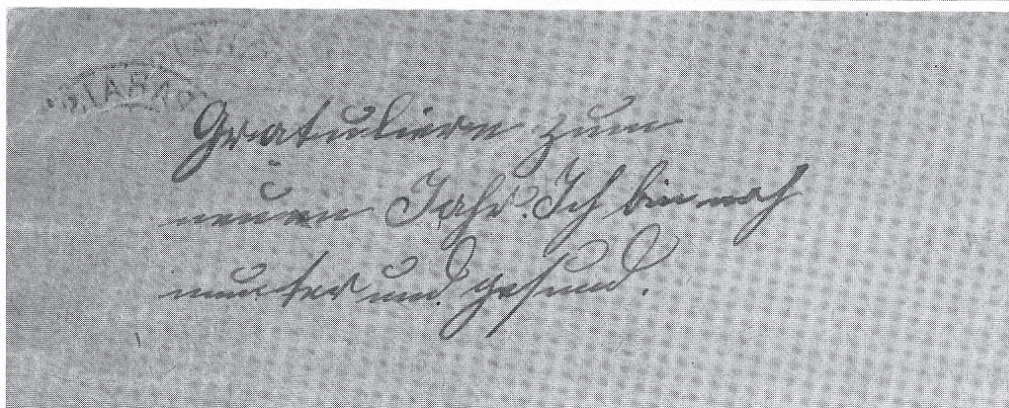 Gratuliere zum
neuen Jahr. Ich bin noch
munter und gesund.